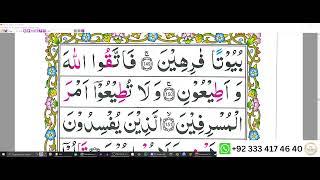 بُيُوتًا فٰرِهِيْنَ ﴿۱۴۹﴾ فَاتَّقُوا اللّٰهَ
وَ اَطِيْعُوْنِ ﴿۱۵۰﴾ وَلَا تُطِيْعُوْۤا اَمْرَ
الْمُسْرِفِيْنَ ﴿۱۵۱﴾ الَّذِيْنَ يُفْسِدُوْنَ
+92 333 417 46 40